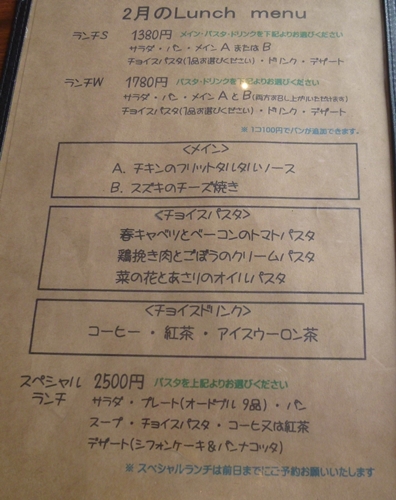 2月のLunch menu
ランチS 1380円 メイン・パスタ・ドリンクを下記よりお選びください
サラダ・パン・メイン A または B
チョイスパスタ(1品お選びください)・ドリンク・デザート
ランチW 1780円 パスタ・ドリンクを下記よりお選びください
サラダ・パン・メイン A と B(両方お召し上がりいただけます)
チョイスパスタ(1品お選びください)・ドリンク・デザート
※ 1コ100円でパンが追加できます。
<メイン>
A. チキンのフリットタルタルソース
B. スズキのチーズ焼き
<チョイスパスタ>
春キャベツとベーコンのトマトパスタ
鶏挽き肉とごぼうのクリームパスタ
菜の花とあさりのオイルパスタ
<チョイスドリンク>
コーヒー ・ 紅茶 ・ アイスウーロン茶
スペシャルランチ 2500円 パスタを上記よりお選びください
サラダ・プレート(オードブル 9品)・パン
スープ・チョイスパスタ・コーヒー又は紅茶
デザート(シフォンケーキ&パンナコッタ)
※ スペシャルランチは前日までにご予約お願いいたします